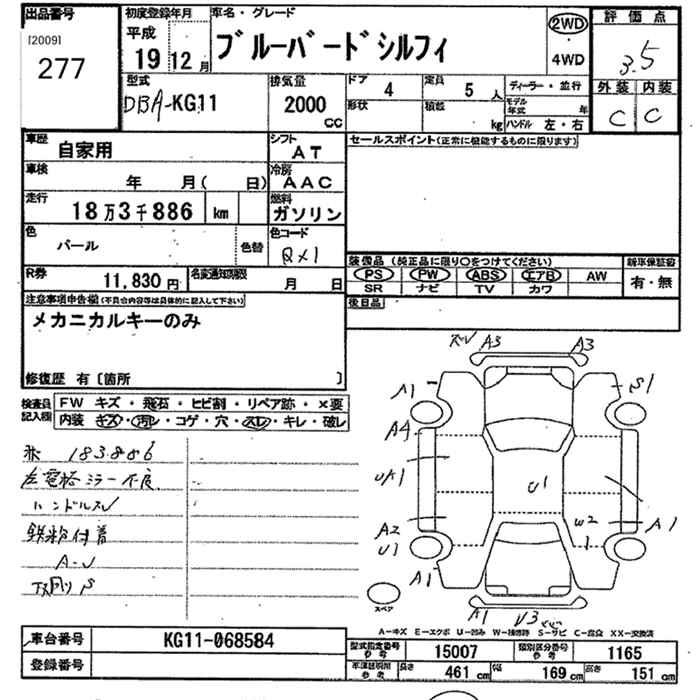 出品番号
[2009]
277
初度登録年月
平成
19年12月
車名・グレード
ブルーバードシルフィ
2WD
4WD
評価点
3.5
外装 内装
C C
型式
DBA-KG11
排気量
2000
CC
ドア
4
定員
5人
形状
積載
kg
ディーラー・並行
モデル年式 年
ハンドル 左・右
車歴
自家用
シフト
AT
セールスポイント(正常に機能するものに限ります)
車検
年 月( 日)
冷房
AAC
走行
18万3千886 km
燃料
ガソリン
色
パール
色替
色コード
QX1
装備品(純正品に限り○をつけてください)
新車保証書
PS PW ABS エアB AW
SR ナビ TV カワ
有・無
R券
11,830円
名変通知期限
月 日
後日品
注意事項申告欄(不具合内容等は具体的に記入して下さい)
メカニカルキーのみ
修復歴 有〔箇所 〕
検査員記入欄
FW キズ・飛石・ヒビ割・リペア跡・×要
内装 キズ・汚レ・コゲ・穴・スレ・キレ・破レ
183886
左電格ミラー不良
ハンドルスレ
鉄粉付着
A-U
下回りS
A3 A3
A1 S1
A4
UA1
U1
A2 W2 A1
U1 1
A1
スペア
A1 U3
A-キズ E-エクボ U-凹み W-補修跡 S-サビ C-腐食 XX-交換済
車台番号
KG11-068584
登録番号
型式指定番号
参考
15007
類別区分番号
参考
1165
車庫証明用
参考
長さ 461 cm
幅 169 cm
高さ 151 cm